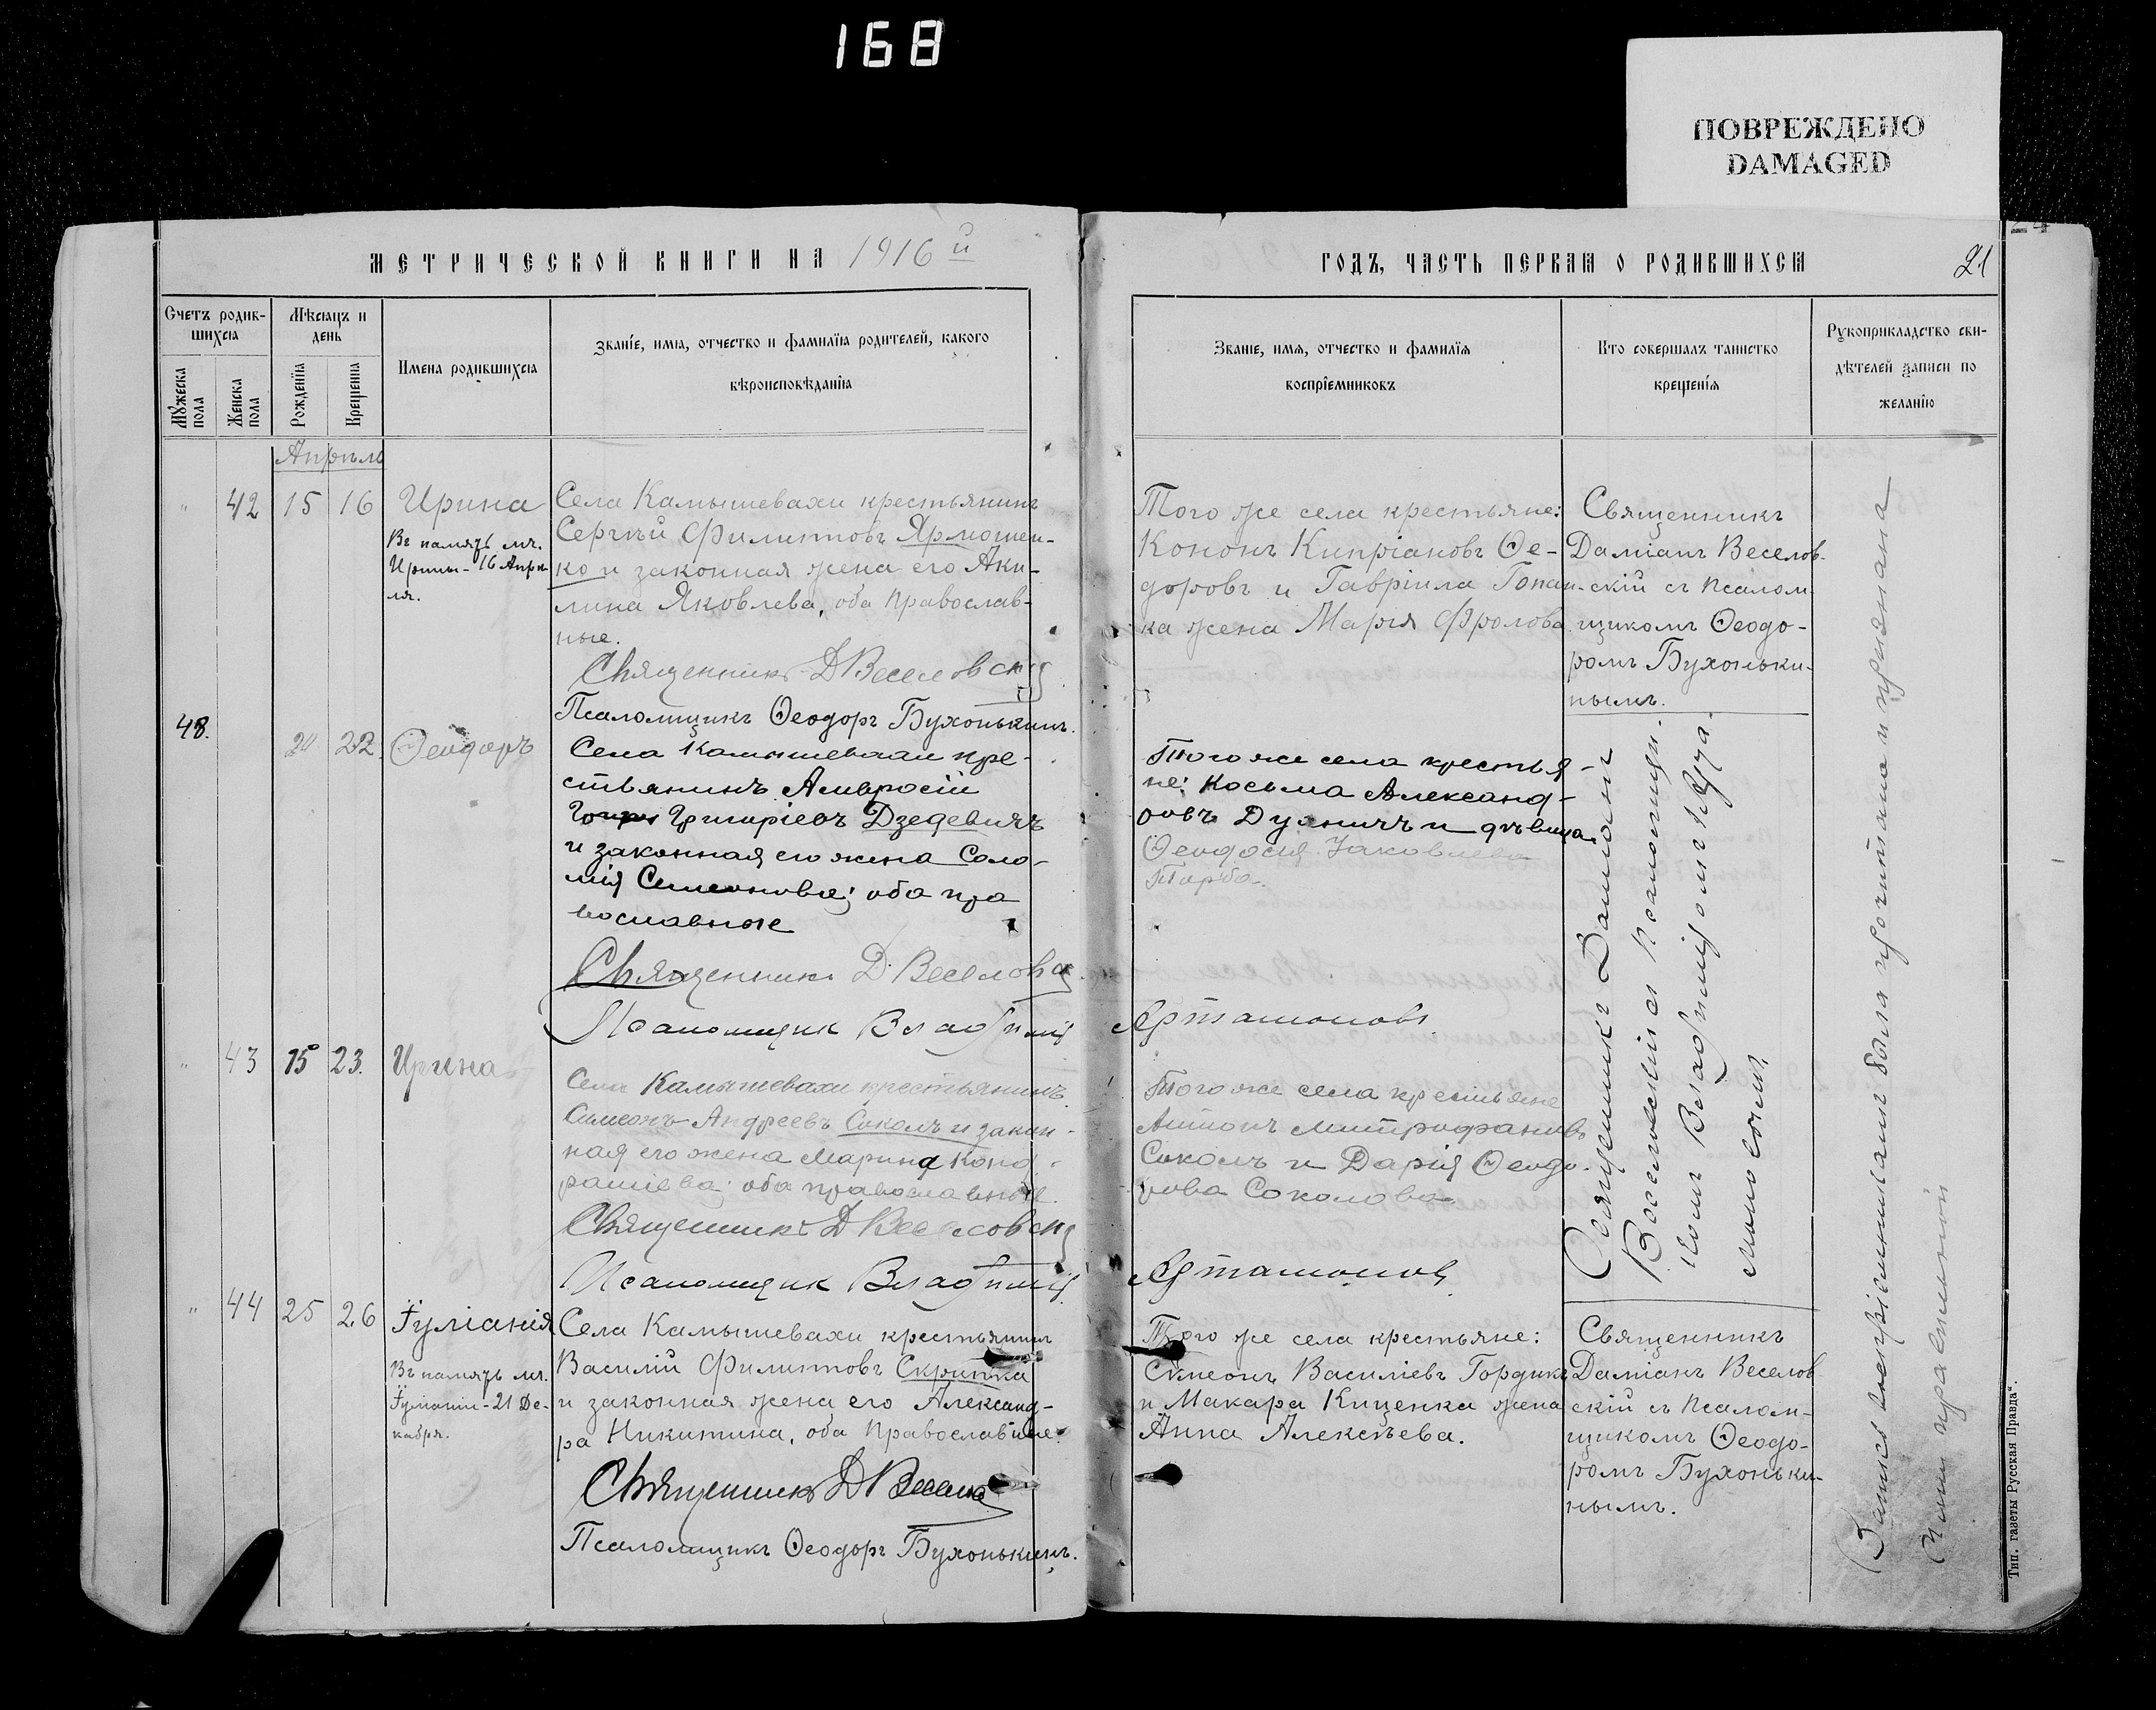 168
ПОВРЕЖДЕНО
DAMAGED
МЕТРИЧЕСКОЙ КНИГИ НА 1916 й
ГОДЪ, ЧАСТЬ ПЕРВАЯ О РОДИВШИХСЯ
21
Счетъ родив-
шихся
Мѣсяцъ и
день
Мужеска
пола
Женска
пола
Рожденїя
Крещенїя
Имена родившихся
Званїе, имя, отчество и фамилїя родителей, какого
вѣроисповѣданїя
Званїе, имя, отчество и фамилїя
воспрїемниковъ
Кто совершалъ таинство
крещенїя
Рукоприкладство сви-
дѣтелей записи по
желанїю
Апрѣль
" 42 15 16 Ирина
Въ память мч.
Ирины - 16 Апрѣ-
ля.
Села Камышевахи крестьянинъ
Сергѣй Филипповъ Ярмошен-
ко и законная жена его Аки-
лина Яковлева, оба Православ-
ные.
Священникъ Д Веселовскій
Псаломщикъ Ѳеодоръ Бухонькинъ.
Того же села крестьяне:
Кононъ Кипріановъ Ѳе-
доровъ и Гавріила Гопан-
ка жена Марія Фролова.
Священникъ
Даміанъ Веселов-
скій съ Псалом-
щикомъ Ѳеодо-
ромъ Бухоньки-
нымъ.
48. 20 22. Ѳеодоръ
Села Камышевахи кре-
стьянинъ Амвросій
Григоріевъ Дзедевичъ
и законная его жена Соло-
мія Семеонова; оба пра
вославные
Священникъ Д. Веселовскій
Псаломщик Владимір Артамоновъ.
Того же села крестья-
не: Косьма Александ-
ровъ Духничъ и дѣвица
Ѳеодосія Іаковлева
Священникъ Даміанъ
Веселовскій съ Псаломщи-
комъ Владиміромъ Арта-
моновымъ
" 43 15 23. Ирина
Села Камышевахи крестьянинъ
Симеонъ Андреевъ Соколъ и закон-
ная его жена Марина Конд-
ратіева; оба православные.
Священникъ Д Веселовскій
Псаломщик Владимір Артамоновъ
Того же села крестьяне
Антонъ Митрофановъ
Соколъ и Дарія Ѳеодо-
рова Соколова
" 44 25 26 Іуліанія
Въ память мч.
Іуліаніи - 21 Де-
кабря.
Села Камышевахи крестьянинъ
Василій Филипповъ Скрипка
и законная жена его Александ-
ра Никитина, оба Православные.
Священникъ Д Веселов
Псаломщикъ Ѳеодоръ Бухонькинъ.
Того же села крестьяне:
Симеонъ Василіевъ Гордикъ
и Макара Киценка жена
Анна Алексѣева.
Священникъ
Даміанъ Веселов
скій съ Псалом-
щикомъ Ѳеодо-
ромъ Бухоньки-
нымъ.
Запись воспріемниками была прочитана и признана
ими правильной
Тип. газеты Русская Правда".